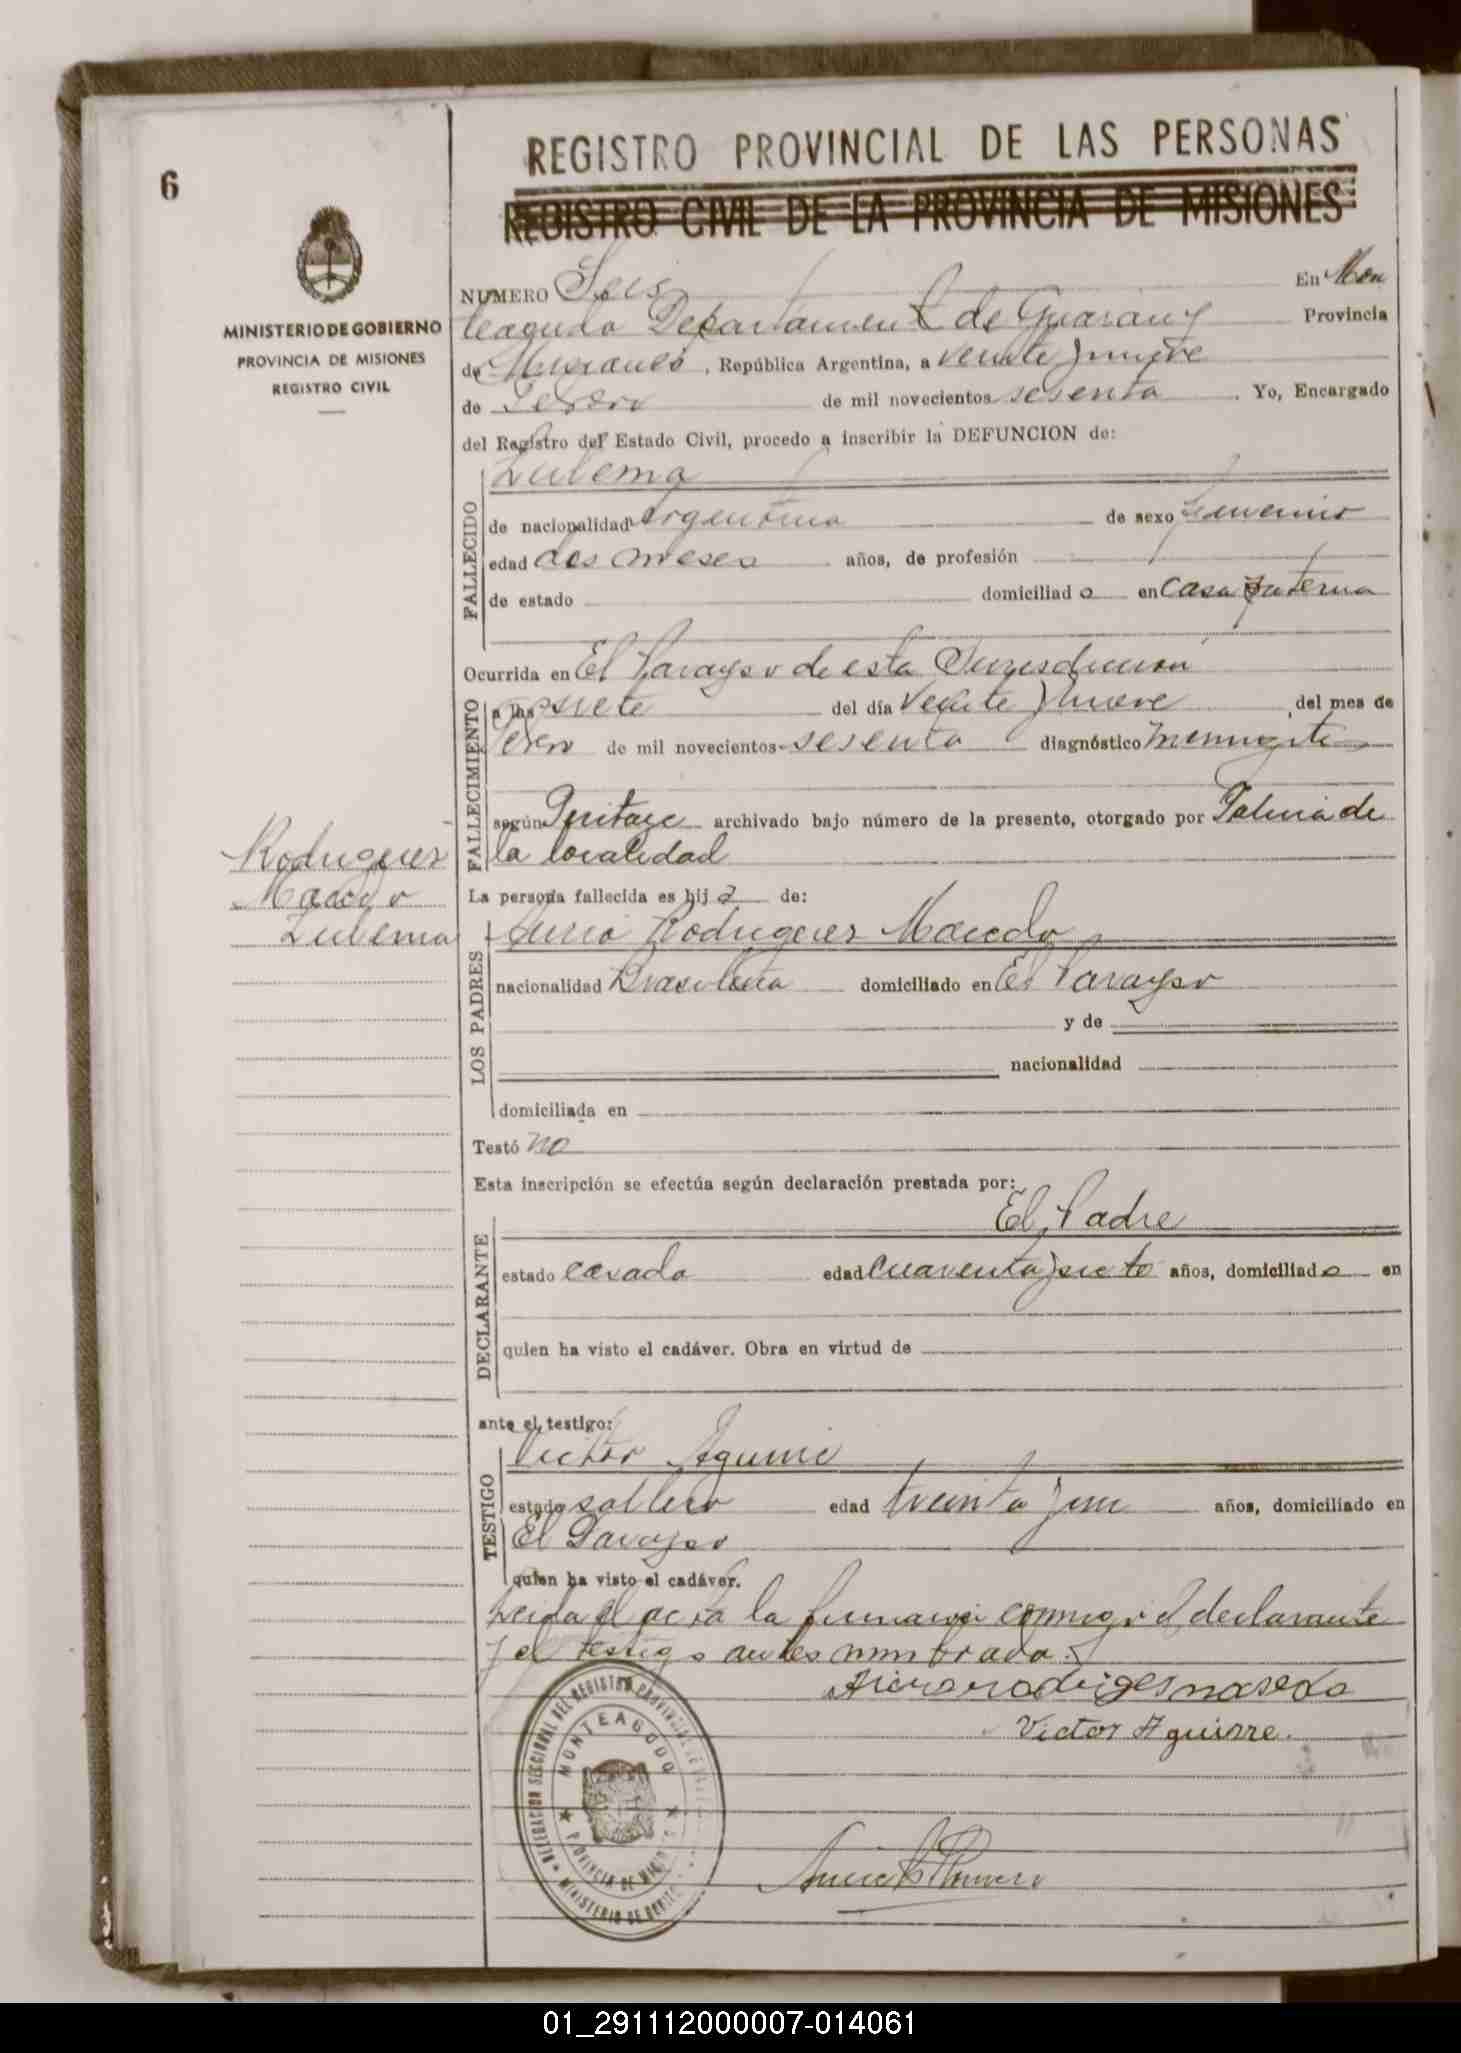 6
MINISTERIO DE GOBIERNO
PROVINCIA DE MISIONES
REGISTRO CIVIL
REGISTRO PROVINCIAL DE LAS PERSONAS
REGISTRO CIVIL DE LA PROVINCIA DE MISIONES
NUMERO Seis En Mon
teagudo Departamento de Guarany Provincia
de Misiones, República Argentina, a veinte y nueve
de Febrero de mil novecientos sesenta. Yo, Encargado
del Registro del Estado Civil, procedo a inscribir la DEFUNCION de:
Zulema
FALLECIDO
de nacionalidad argentina de sexo femenino
edad dos meses años, de profesión
de estado domiciliad o en casa paterna
FALLECIMIENTO
Ocurrida en El Parayso de esta Jurisdiccion
a las siete del día veinte y nueve, del mes de
Febrero de mil novecientos sesenta diagnóstico
según Peritaje archivado bajo número de la presente, otorgado por Policia de
la localidad
Rodriguez
Macedo
Zulema
La persona fallecida es hij a de:
LOS PADRES
Rodriguez Macedo
nacionalidad Brasileña domiciliado en El Parayso
y de
nacionalidad
domiciliada en
Testó no
Esta inscripción se efectúa según declaración prestada por:
DECLARANTE
El Padre
estado casado edad cuarenta y siete años, domiciliad o en
quien ha visto el cadáver. Obra en virtud de
ante el testigo:
TESTIGO
Victor Aguirre
estado soltero edad treinta y un años, domiciliado en
El Parayso
quien ha visto el cadáver.
Leida el acta la firman conmigo el declarante
y el testigo antes nombrado.
rodriges masedo
Victor Aguirre.
DELEGACION SECCIONAL DEL REGISTRO PROVINCIAL DE LAS
MONTEAGUDO
PROVINCIA DE MISIONES
MINISTERIO DE
01_291112000007-014061